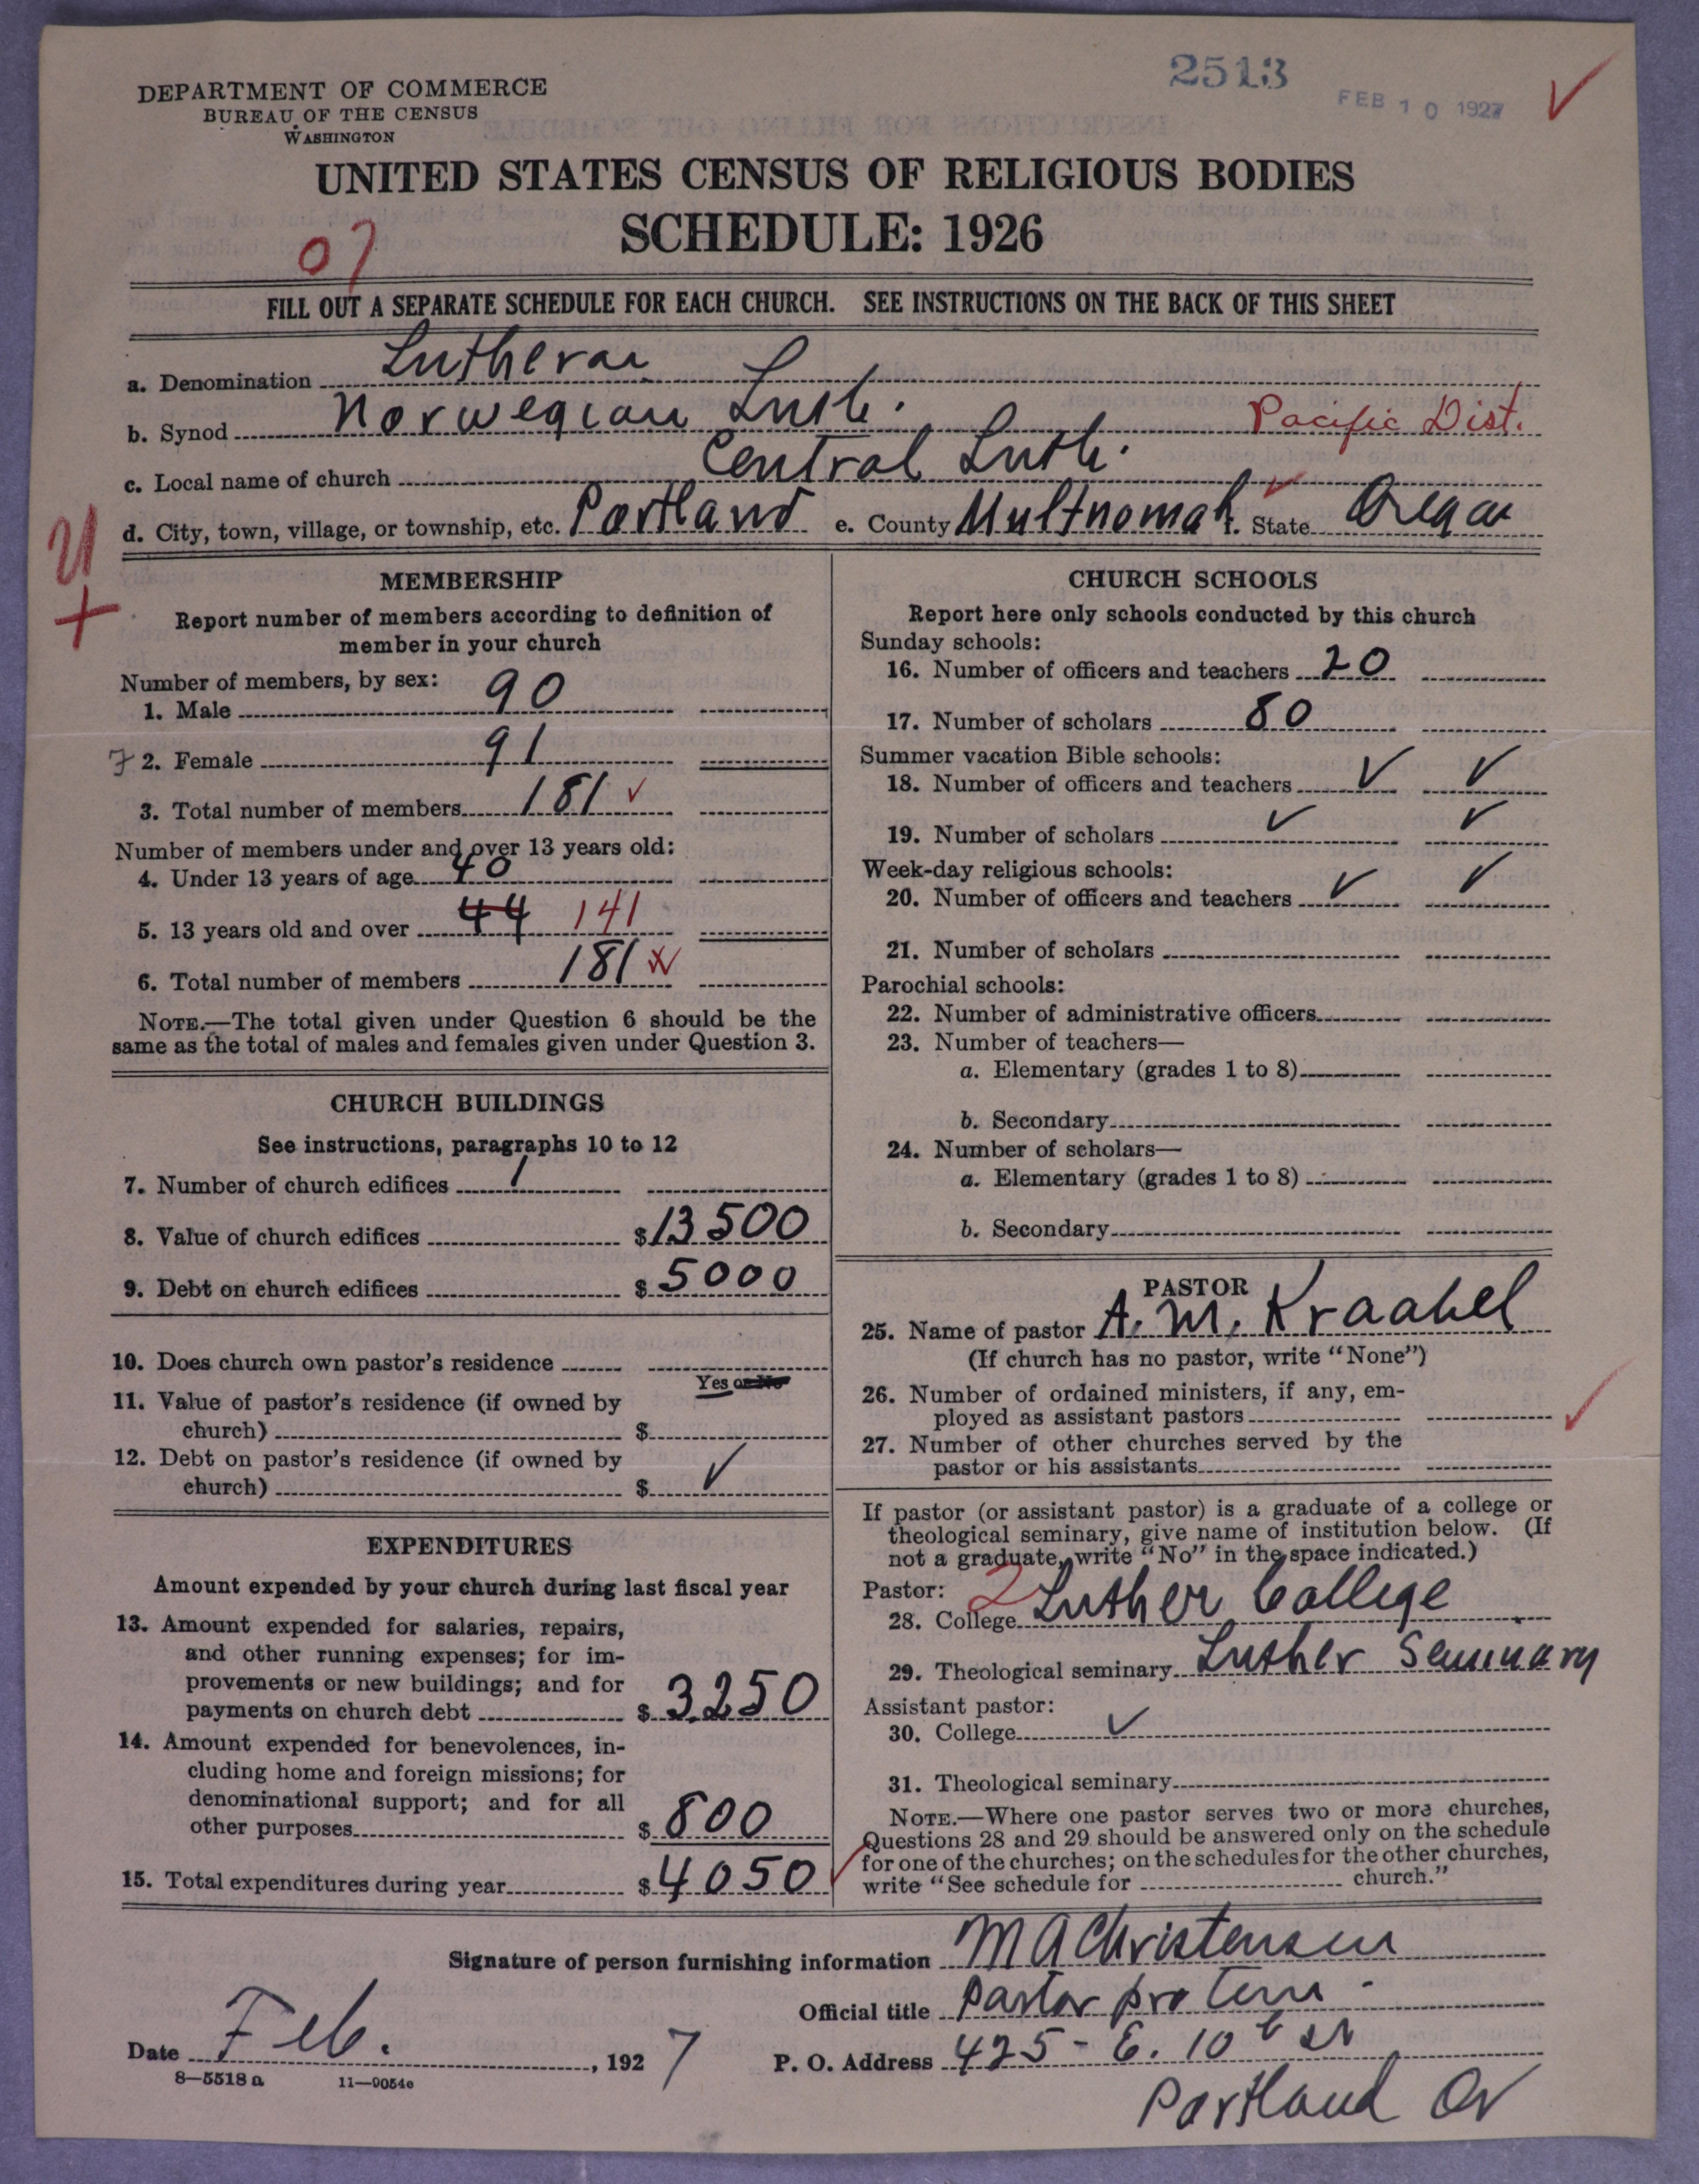 2513
FEB 10 1927
DEPARTMENT OF COMMERCE
BUREAU OF THE CENSUS
WASHINGTON
UNITED STATES CENSUS OF RELIGIOUS BODIES
SCHEDULE: 1926
07
FILL OUT A SEPARATE SCHEDULE FOR EACH CHURCH. SEE INSTRUCTIONS ON THE BACK OF THIS SHEET
a. Denomination Lutheran
b. Synod Norwegian Luth. Pacific Dist.
c. Local name of church Central Luth.
d. City, town, village, or township, etc. Portland e. County Multnomah f. State Oregon
MEMBERSHIP
Report number of members according to definition of
member in your church
Number of members, by sex:
1. Male 90
2. Female 91
3. Total number of members 181 ✓
Number of members under and over 13 years old:
4. Under 13 years of age 40
5. 13 years old and over 44 141
6. Total number of members 181
NOTE.—The total given under Question 6 should be the
same as the total of males and females given under Question 3.
CHURCH BUILDINGS
See instructions, paragraphs 10 to 12
7. Number of church edifices 1
8. Value of church edifices $13500
9. Debt on church edifices $5000
10. Does church own pastor's residence
Yes or No
11. Value of pastor's residence (if owned by
church) $
12. Debt on pastor's residence (if owned by
church) $ ✓
EXPENDITURES
Amount expended by your church during last fiscal year
13. Amount expended for salaries, repairs,
and other running expenses; for im-
provements or new buildings; and for
payments on church debt $3250
14. Amount expended for benevolences, in-
cluding home and foreign missions; for
denominational support; and for all
other purposes $800
15. Total expenditures during year $4050 ✓
CHURCH SCHOOLS
Report here only schools conducted by this church
Sunday schools:
16. Number of officers and teachers 20
17. Number of scholars 80
Summer vacation Bible schools:
18. Number of officers and teachers ✓ ✓
19. Number of scholars ✓ ✓
Week-day religious schools:
20. Number of officers and teachers ✓ ✓
21. Number of scholars
Parochial schools:
22. Number of administrative officers
23. Number of teachers—
a. Elementary (grades 1 to 8)
b. Secondary
24. Number of scholars—
a. Elementary (grades 1 to 8)
b. Secondary
PASTOR
25. Name of pastor A. M. Kraabel
(If church has no pastor, write "None")
26. Number of ordained ministers, if any, em-
ployed as assistant pastors
27. Number of other churches served by the
pastor or his assistants
If pastor (or assistant pastor) is a graduate of a college or
theological seminary, give name of institution below. (If
not a graduate, write "No" in the space indicated.)
Pastor: 2
28. College Luther College
29. Theological seminary Luther Seminary
Assistant pastor:
30. College ✓
31. Theological seminary
NOTE.—Where one pastor serves two or more churches,
Questions 28 and 29 should be answered only on the schedule
for one of the churches; on the schedules for the other churches,
write "See schedule for church."
Signature of person furnishing information M A Christensen
Official title Pastor pro tem
Date Feb. , 1927 P. O. Address 425 - E. 10th St
Portland Or
8—5518 a 11—9054c